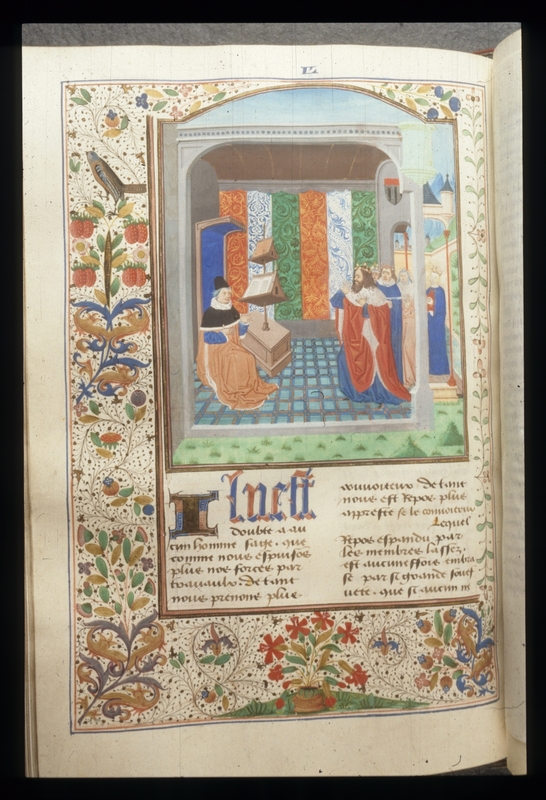 Il nest
doubte a au
cun homme saige . que
comme nous espuisos
plus nos forces par
trauaulx . de tant
nous prenons plus
conuoiteux de tant
nous est Repos plus
appreste se le conuoiteux
Lequel
Repos espandu par
les membres lassez .
est aucuneffois embra
se par si grande souef
uete . que se aucun